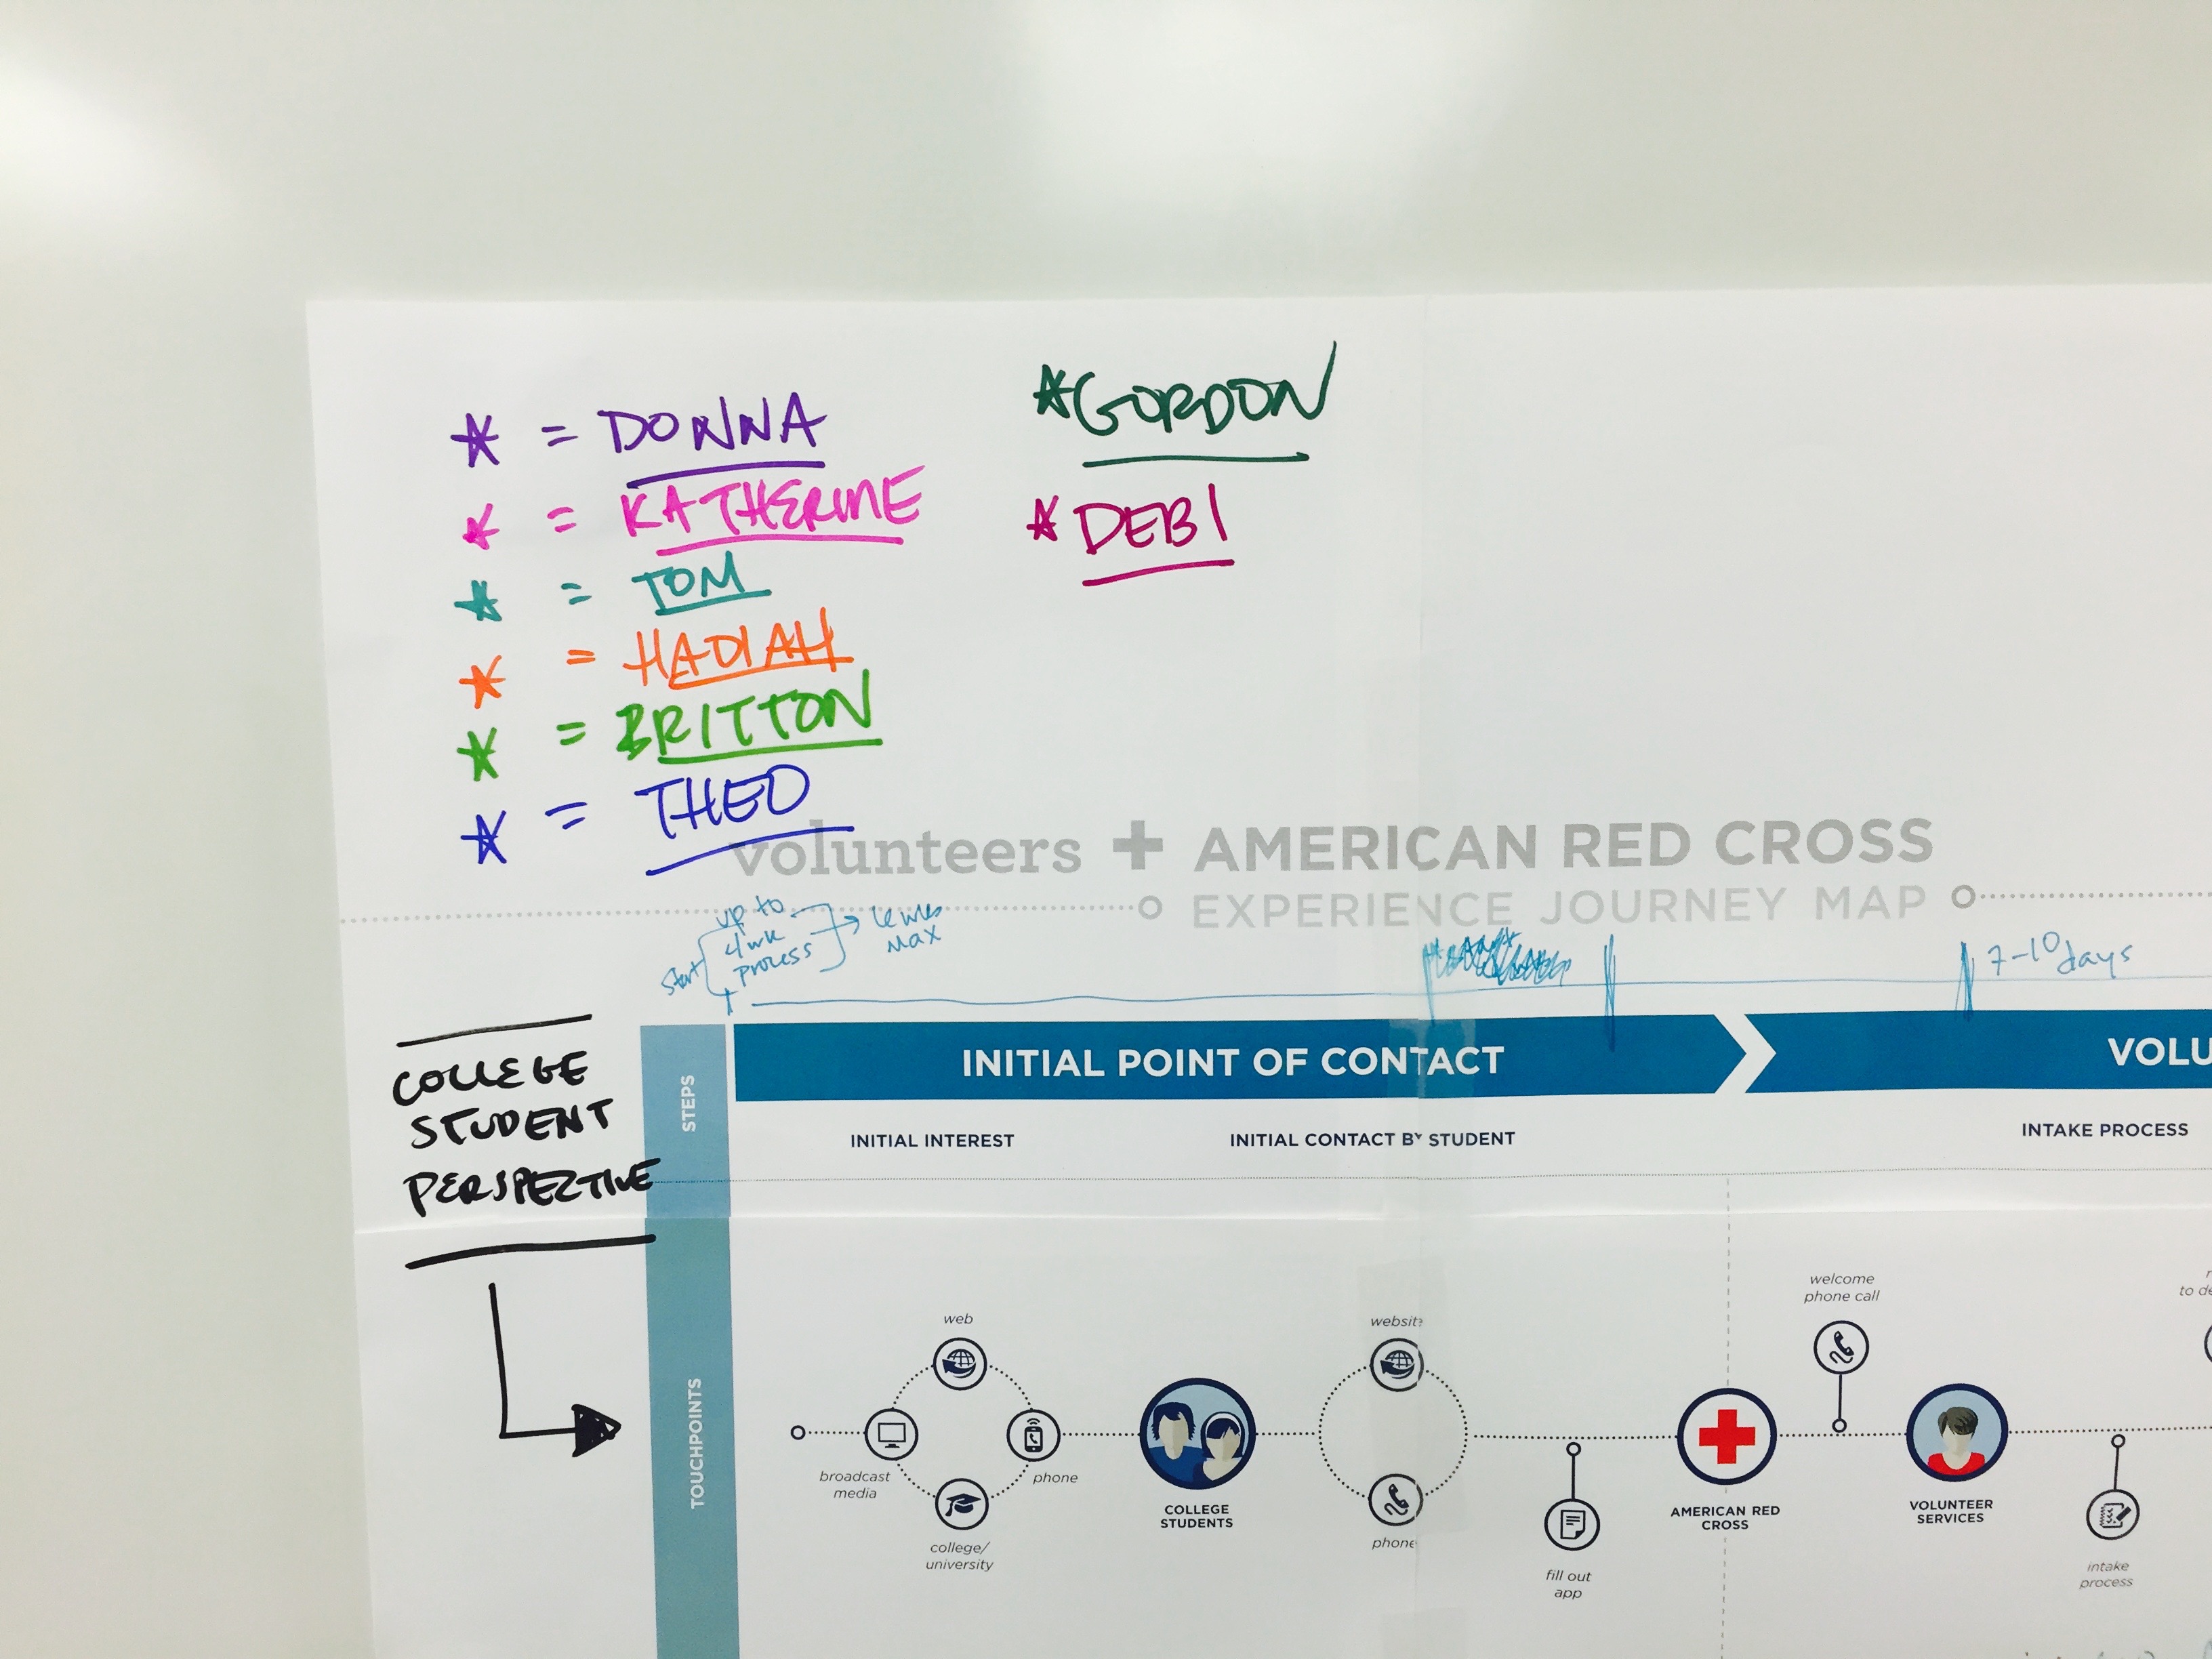 * = DONNA
* = KATHERINE
* = TOM
* = HADIAH
* = BRITTON
* = THEO
* GORDON
* DEBI
volunteers + AMERICAN RED CROSS
EXPERIENCE JOURNEY MAP
start
up to
4 wk
process
max
7-10 days
COLLEGE
STUDENT
PERSPECTIVE
STEPS
INITIAL POINT OF CONTACT
VOLU
INITIAL INTEREST
INITIAL CONTACT BY STUDENT
INTAKE PROCESS
TOUCHPOINTS
web
broadcast
media
phone
college/
university
COLLEGE
STUDENTS
website
phone
fill out
app
AMERICAN RED
CROSS
welcome
phone call
VOLUNTEER
SERVICES
intake
process
to de